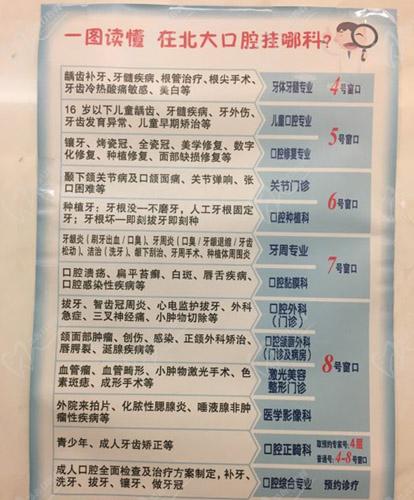 一图读懂 在北大口腔挂哪科？
龋齿补牙、牙髓疾病、根管治疗、根尖手术、
牙齿冷热酸痛敏感、美白等
牙体牙髓专业
4号窗口
16 岁以下儿童龋齿、牙髓疾病、牙外伤、
牙齿发育异常、儿童早期矫治等
儿童口腔专业
5号窗口
镶牙、烤瓷冠、全瓷冠、美学修复、数字
化修复、种植修复、面部缺损修复等
口腔修复专业
颞下颌关节病及口颌面痛、关节弹响、张
口困难等
关节门诊
6号窗口
种植牙：牙根没一不磨牙，人工牙根固定
牙；牙根坏—即刻拔牙即刻种
口腔种植科
牙龈炎（刷牙出血/口臭）、牙周炎（口臭/牙龈退缩/牙齿
松动）、洁治（洗牙）、龈下刮治、牙周手术、种植体周围炎
牙周专业
7号窗口
口腔溃疡、扁平苔癣、白斑、唇舌疾病、
口腔感染性疾病等
口腔黏膜科
拔牙、智齿冠周炎、心电监护拔牙、外科
急症、三叉神经痛、小肿物切除等
口腔外科
（门诊）
8号窗口
颌面部肿瘤、创伤、感染、正颌外科矫治、
唇腭裂、涎腺疾病等
口腔颌面外科
（门诊及病房）
血管瘤、血管畸形、小肿物激光手术、色
素斑痣、成形手术等
激光美容
整形门诊
外院来拍片、化脓性腮腺炎、唾液腺非肿
瘤性疾病等
医学影像科
青少年、成人牙齿矫正等
口腔正畸科
取预约专家号：4层
普通号：4-8号窗口
成人口腔全面检查及治疗方案制定，补牙、
洗牙、拔牙、镶牙、做牙冠
口腔综合专业
预约诊疗